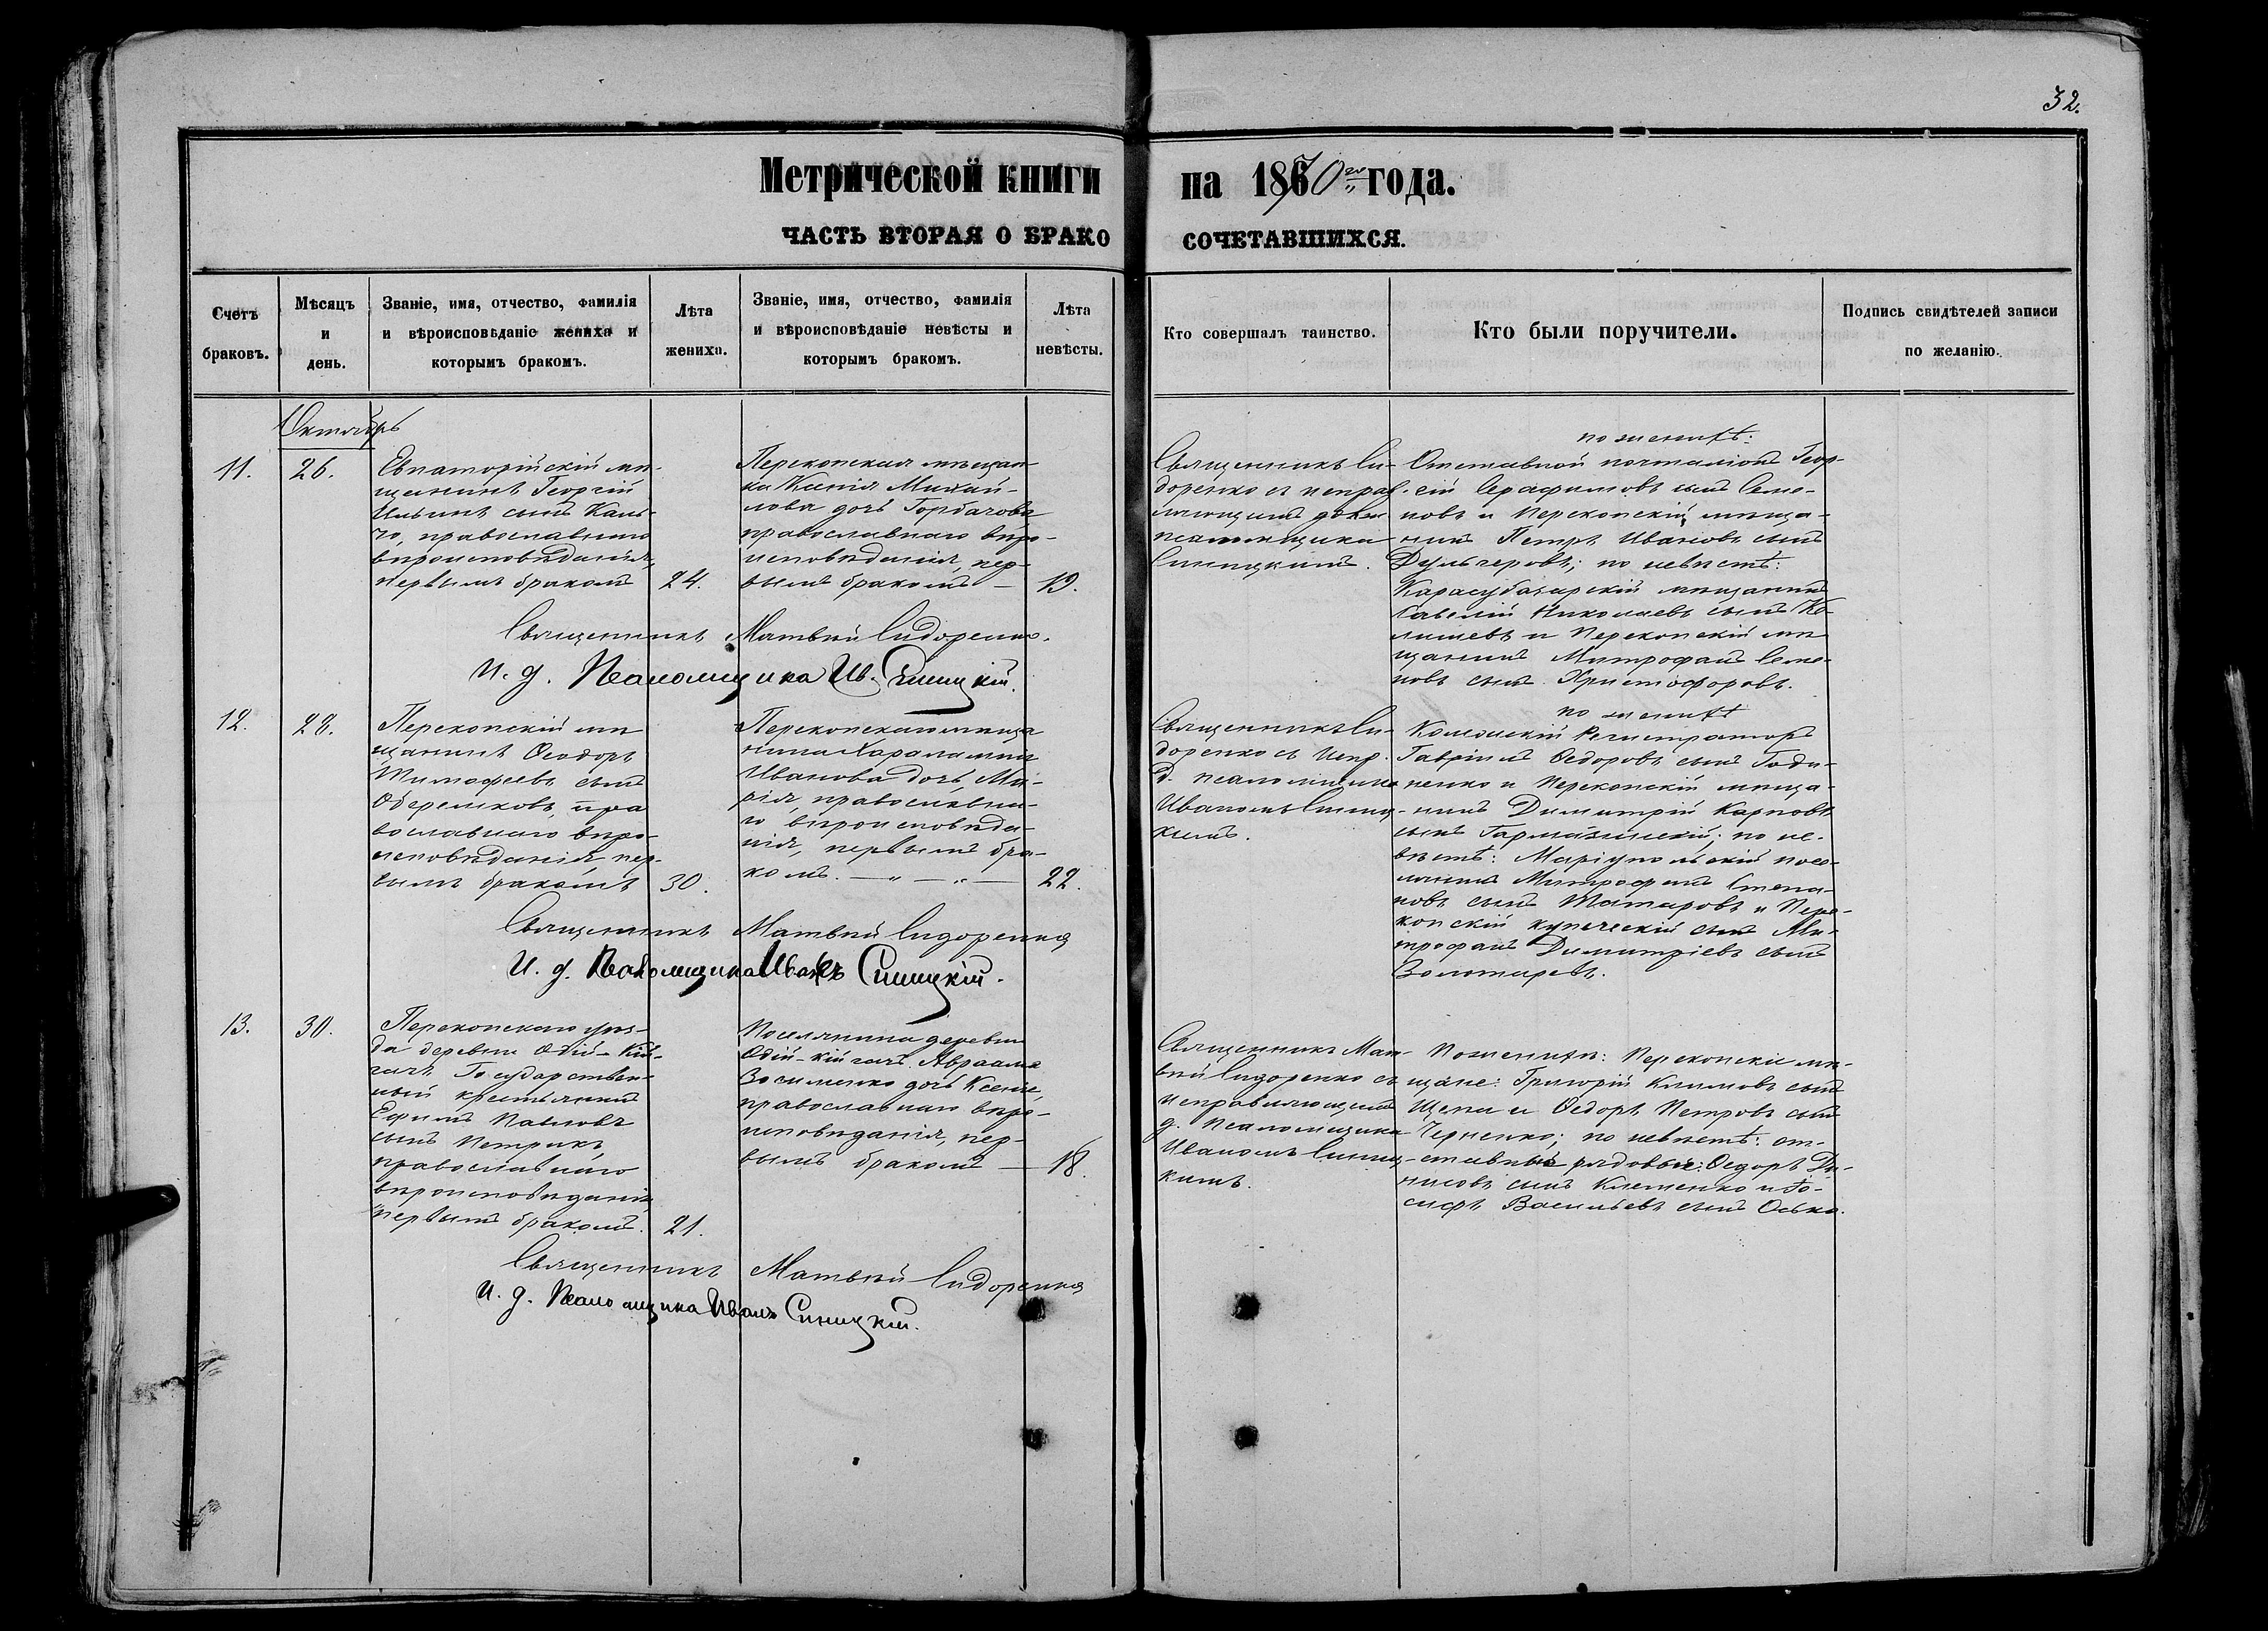 32.
Метрической книги на 1870го года.
ЧАСТЬ ВТОРАЯ О БРАКО СОЧЕТАВШИХСЯ.
Счетъ
браковъ.
Мѣсяцъ
и
день.
Званіе, имя, отчество, фамилія
и вѣроисповѣданіе жениха и
которымъ бракомъ.
Лѣта
жениха.
Званіе, имя, отчество, фамилія
и вѣроисповѣданіе невѣсты и
которымъ бракомъ.
Лѣта
невѣсты.
Кто совершалъ таинство.
Кто были поручители.
Подпись свидѣтелей записи
по желанію.
Октябрь
11.
26.
Евпаторійскій мѣ-
щанинъ Георгій
Ильинъ сынъ Каль-
го, православнаго
вѣроисповѣданія,
первымъ бракомъ
24.
Перекопская мѣщан-
ка Ксенія Михай-
лова дочь Горбачова
православнаго вѣро-
исповѣданія, пер-
вымъ бракомъ —
19.
Священникъ Си-
доренко съ исправ-
ляющимъ долж.
псаломщика
Синицкимъ.
по женихѣ:
Отставной почталіонъ Геор-
гій Серафимовъ сынъ Семе-
новъ и Перекопскій мѣща-
нинъ Петръ Ивановъ сынъ
Дульгеровъ; по невѣстѣ:
Карасубазарскій мѣщанинъ
Савелій Николаевъ сынъ Ко-
лишевъ и Перекопскій мѣ
щанинъ Митрофанъ Семе-
новъ сынъ Христофоровъ.
Священникъ Матвѣй Сидоренко.
И. д. Псаломщика Ив. Синицкій.
12.
28.
Перекопскій мѣ
щанинъ Ѳеодоръ
Тимофеевъ сынъ
Оберемковъ, пра
вославнаго вѣро-
исповѣданія, пер-
вымъ бракомъ
30.
Перекопскаго мѣща
нина Харалампія
Иванова дочь, Ма-
рія, православна-
го вѣроисповѣда-
нія, первымъ бра-
комъ. — " — " —
22.
Священникъ Си-
доренко съ испр.
д. псаломщика
Иваномъ Синиц-
кимъ.
по женихѣ
Колежскій Регистраторъ
Гавріилъ Ѳедоровъ сынъ Годи-
ненко и Перекопскій мѣща-
нинъ Димитрій Карповъ
сынъ Гармазинскій; по не-
вѣстѣ: Маріупольскій посе-
лянинъ Митрофанъ Степа-
новъ сынъ Татаровъ и Пере-
копскій купеческій сынъ Ми-
трофанъ Димитріевъ сынъ
Золотаревъ.
Священникъ Матвѣй Сидоренко
И. д. Псаломщика Иванъ Синицкій.
13.
30.
Перекопскаго уѣз-
да деревни Одій-Кій-
гачъ Государствен-
ный крестьянинъ
Ефимъ Павловъ
сынъ Петрикъ,
православнаго
вѣроисповѣданія,
первымъ бракомъ.
21.
Поселянина деревни
Одій-Кійгачъ Авраама
Зосименко дочь Ксенія,
православнаго вѣро-
исповѣданія, пер-
вымъ бракомъ —
18.
Священникъ Мат-
вѣй Сидоренко съ
исправляющимъ
д. псаломщика
Иваномъ Синиц-
кимъ.
По женихѣ: Перекопскіе мѣ-
щане: Григорій Климовъ сынъ
Щепа и Ѳедоръ Петровъ сынъ
Черненко; по невѣстѣ: от-
ставные рядовые: Ѳедоръ Де-
нисовъ сынъ Клеменко и Іо-
сифъ Васильевъ сынъ Осько.
Священникъ Матвѣй Сидоренко
И. д. Псаломщика Иванъ Синицкій.